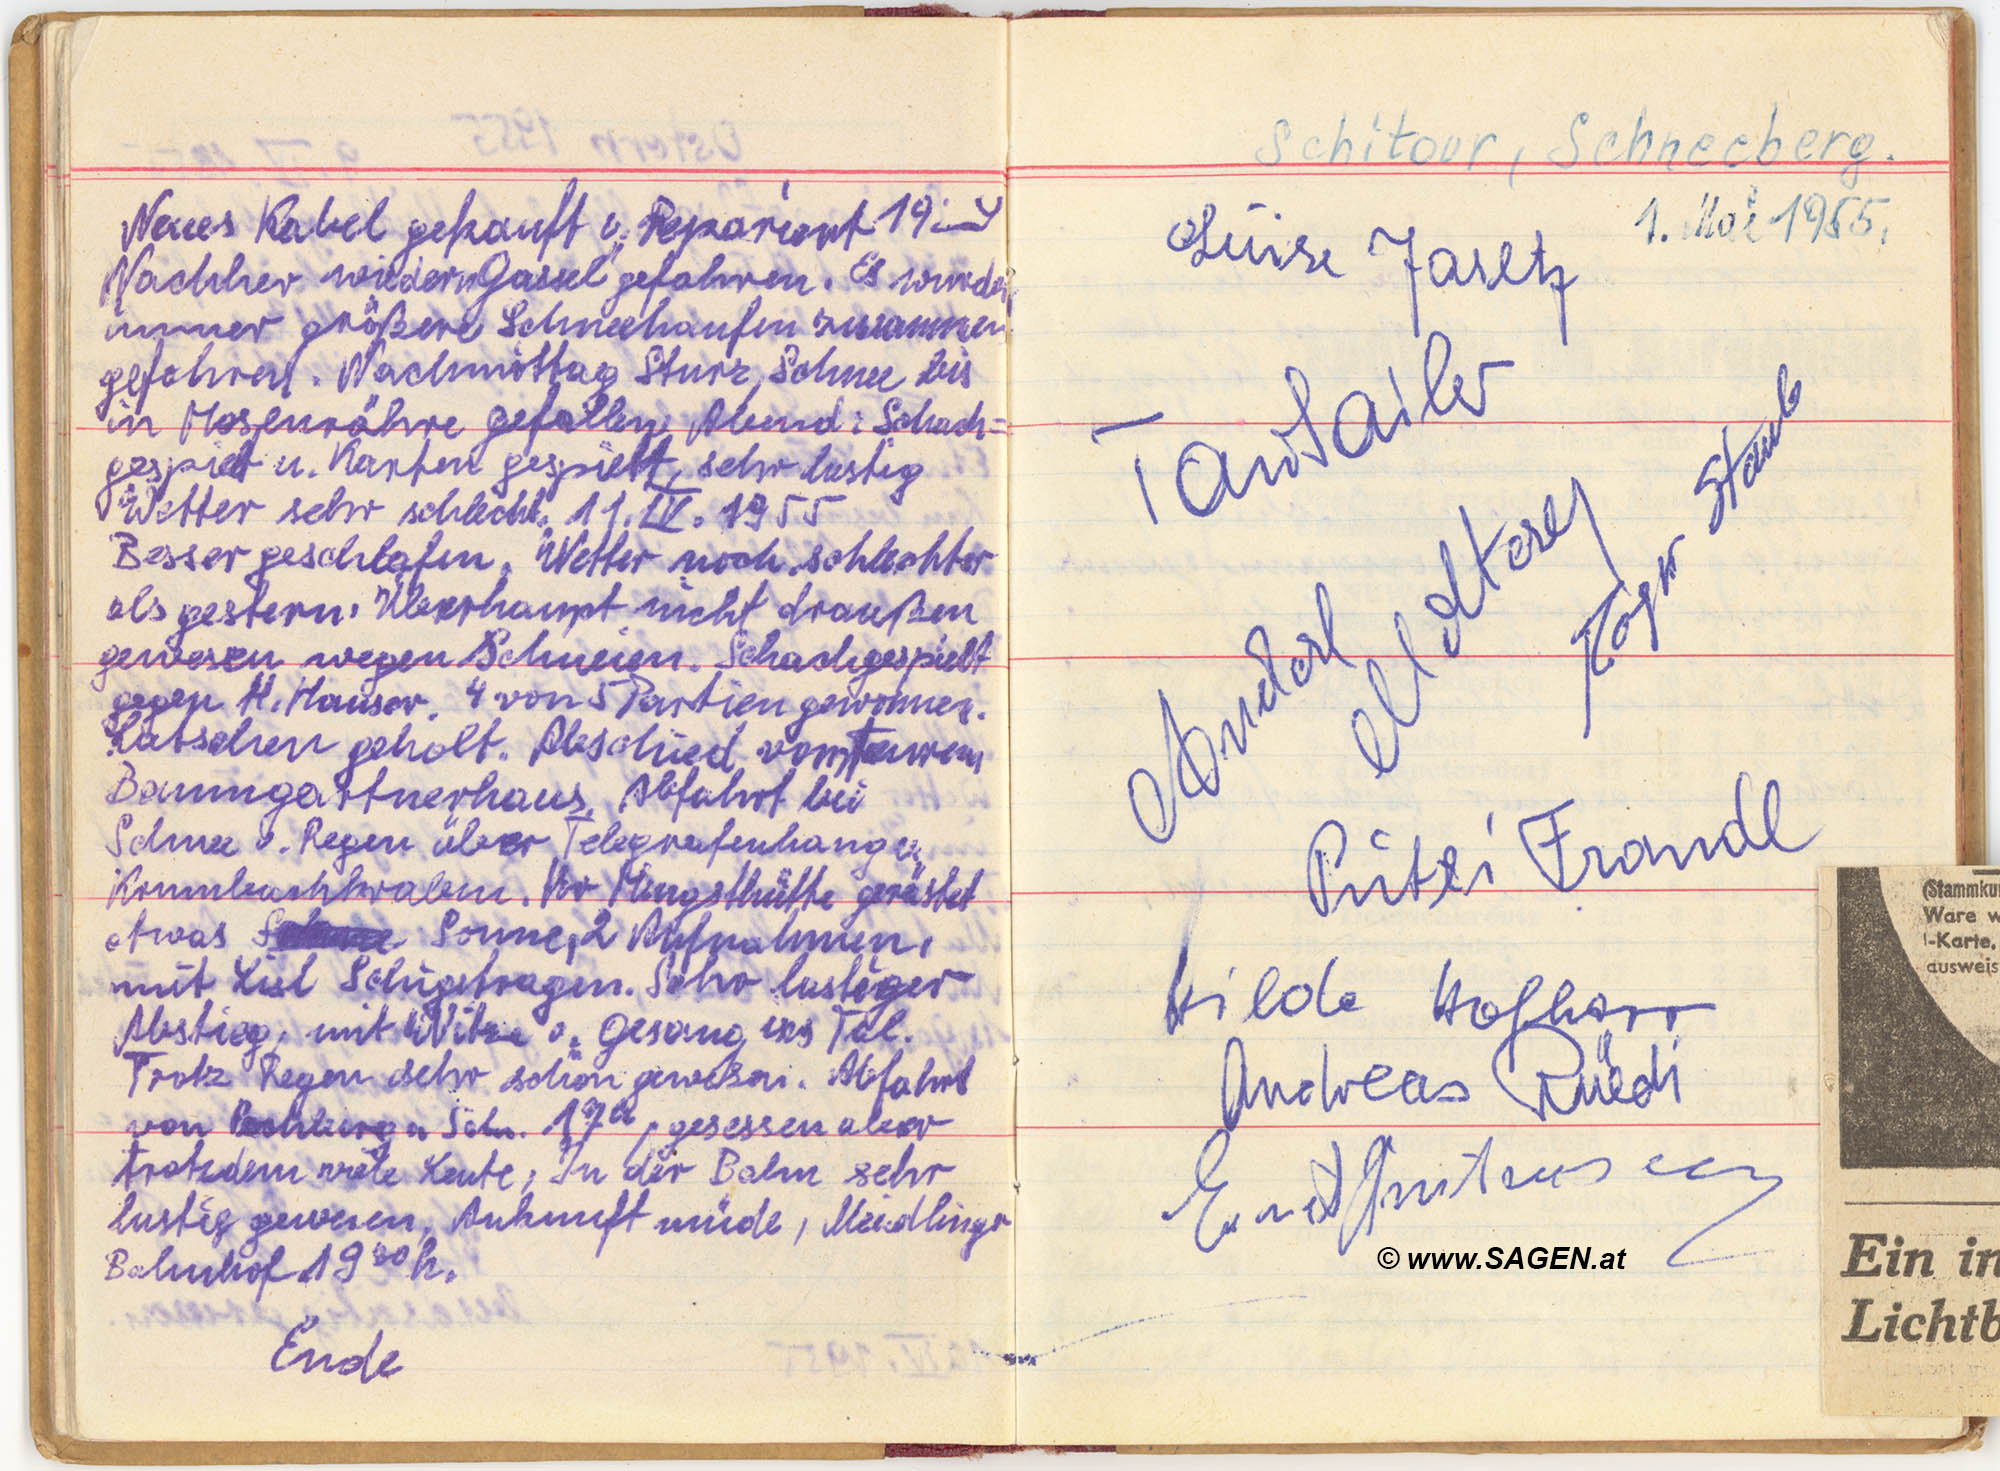 Neues Kabel gekauft u. Repariert 19.-S
Nachher wieder "Gassel" gefahren. Es wurden
immer größere Schneehaufen zusammen
gefahren. Nachmittag Sturz, Schnee bis
in Hosenröhre gefallen, Abend: Schach=
gespielt u. Karten gespielt, sehr lustig
Wetter sehr schlecht. 11. IV. 1955
Besser geschlafen. Wetter noch schlechter
als gestern. Überhaupt nicht draußen
gewesen wegen Schneien. Schachgespielt
gegen H. Hauser. 4 von 5 Partien gewonnen.
Latschen geholt. Abschied vom teuren
Baumgartnerhaus. Abfahrt bei
Schnee u. Regen über Telegrafenhang u.
Krumbachgraben. Vor gerastet
etwas Sonne, 2 Aufnahmen,
mit Liesl Schigetragen. Sehr lustiger
Abstieg, mit Witze u. Gesang ins Tal.
Trotz Regen sehr schön gewesen. Abfahrt
von Sch. 17h, gesessen aber
trotzdem viele Leute, In der Bahn sehr
lustig gewesen, Ankunft müde, Meidlinger
Bahnhof 19 30 h.
Ende
Schitour, Schneeberg.
1. Mai 1955.
Luise
Staub
Franzl
Hilde
Andreas Rüedi
© www.SAGEN.at
(Stammku
Ware w
-Karte,
ausweis
Ein in
Lichtb